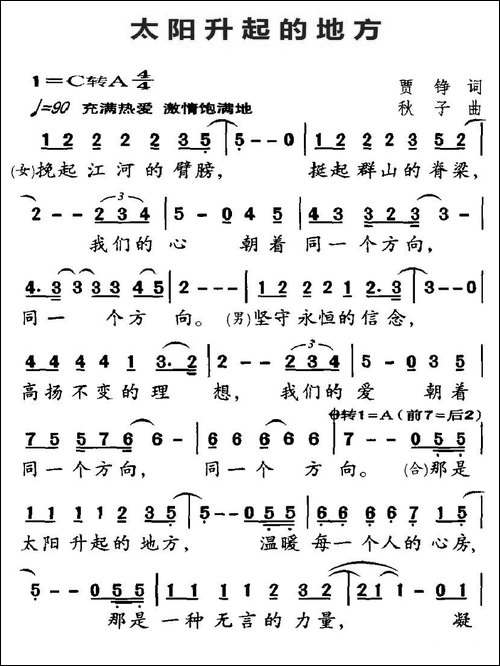 太阳升起的地方
1=C转A 4/4
贾 铮 词
♩=90 充满热爱 激情饱满地
秋 子 曲
1 2 2 2 2 2 3 5 | 5 - - 0 | 1 2 2 2 2 2 3 5 |
(女)挽起江河的臂膀, 挺起群山的脊梁,
3
2 - - 2 3 4 | 5 - 0 4 5 | 4 3 3 2 3 3 - |
我们的心 朝着同一个方向,
4. 3 3 3 3 4 5 | 2 - - - | 1 2 2 2 1 2 2. 3 | 3 - - 0 |
同一 个方向。 (男)坚守永恒的信念,
3
4 4 4 4 1 3. 2 | 2 - - 2 3 4 | 5 - 0 3 5 |
高扬不变的理想, 我们的爱 朝着
转1=A(前7=后2)
7 5 5 7 6 6 - | 6 6 6 6 6 | 7 - - 0 5 5 |
同一个方向, 同一个方向。 (合)那是
1 1 1 1 2 3 5 | 5 - - 0 5 5 | 6 6 6 6 7 1 5 |
太阳升起的地方, 温暖每一个人的心房,
5 - - 0 5 5 | 1 1 1 1 2 3 2 | 2 1 1 - 0 1 |
那是一种无言的力量, 凝